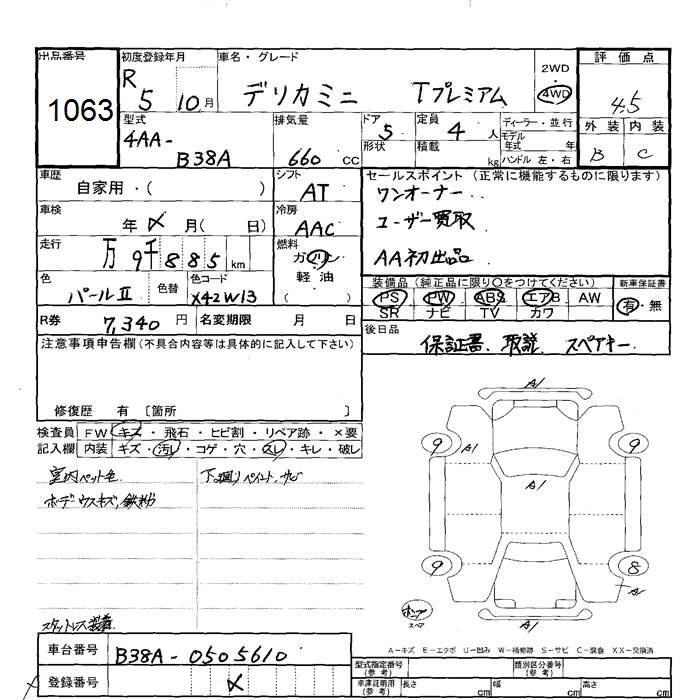 出品番号 初度登録年月 車名・グレード 評価点
1063 R 5 10月 デリカミニ Tプレミアム 2WD 4WD 4.5
型式 排気量 ドア 定員 ディーラー・並行 外装 内装
4AA-B38A 660cc 5 4人 モデル年式 年式 B C
形状 積載 kg ハンドル 左・右
車歴 自家用・( ) シフト AT セールスポイント(正常に機能するものに限ります)
ワンオーナー
車検 年 月( 日) 冷房 AAC ユーザー買取
走行 万9千885km 燃料 ガソリン 軽油 ( ) AA初出品
色 パールⅡ 色替 色コード X42W13 装備品(純正品に限り○をつけてください) 新車保証書
PS PW ABS エアB AW 有・無
SR ナビ TV カワ
R券 7,340円 名変期限 月 日 後日品 保証書、取説 スペアキー
注意事項申告欄(不具合内容等は具体的に記入して下さい)
修復歴 有 〔箇所 〕
検査員 FW キズ・飛石・ヒビ割・リペア跡・×要
記入欄 内装 キズ・汚レ・コゲ・穴・スレ・キレ・破レ
室内ペット毛 下廻りペイント、サビ
ボデーウスキズ、鉄粉
A1
9 A1 9
A1
9 8
A1
A1
スタットレス装着
A-キズ E-エクボ U-凹み W-補修跡 S-サビ C-腐食 XX-交換済
車台番号 B38A-0505610 型式指定番号(参考) 類別区分番号(参考)
登録番号 車庫証明用(参考) 長さ cm 幅 cm 高さ cm